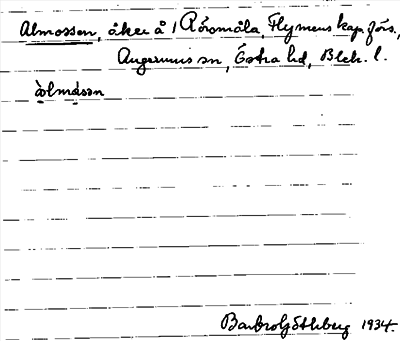 Almossen, åker å 1 Rörsmåla, Flymens kap. förs.,
Augerums sn, Östra hd, Blek. l.
àlmåsən
Barbro Götlberg 1934.